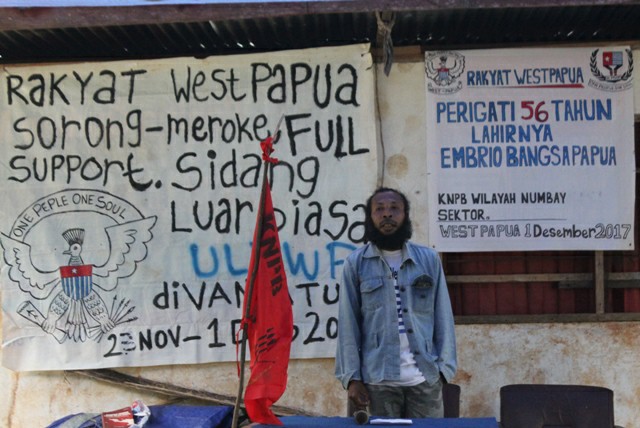 RAKYAT WEST PAPUA
SORONG-MEROKE, FULL
SUPPORT. SIDANG
LUAR BIASA
ULMWP
diVANUATU
ONE PEPLE ONE SOUL
NOV-1
KNPB
RAKYAT WESTPAPUA
PERIGATI 56 TAHUN
LAHIRNYA
EMBRIO BANGSA PAPUA
KNPB WILAYAH NUMBAY
SEKTOR.
WEST PAPUA 1 Desember 2017